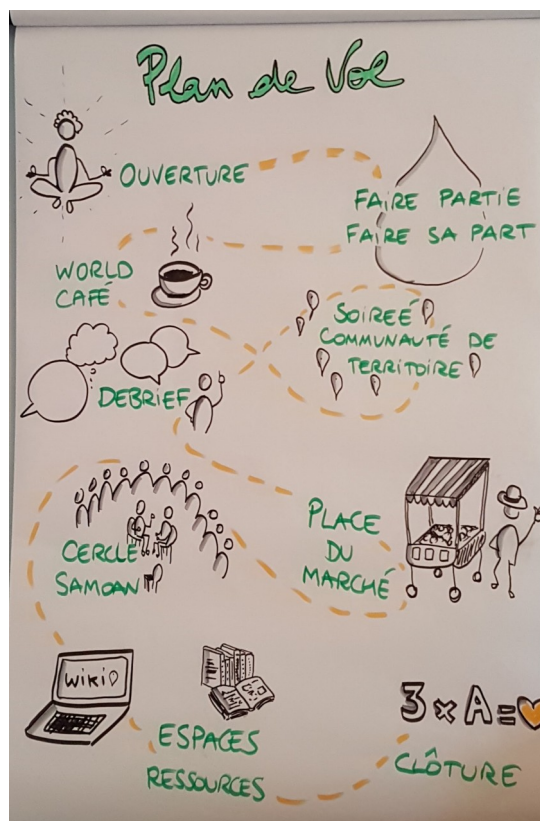 Plan de Vol
OUVERTURE
FAIRE PARTIE
FAIRE SA PART
WORLD
CAFÉ
SOIREÉ
COMMUNAUTÉ DE
TERRITOIRE
DEBRIEF
PLACE
DU
MARCHÉ
CERCLE
SAMOAN
WIKI
ESPACES
RESSOURCES
3 x A = 🧡
CLÔTURE